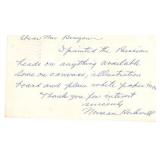 Dear Mr. Benson
I painted the Russian
heads on anything available
Some on canvas, illustration
board and plain white paper
Thank you for interest
Sincerely
Norman Rockwell